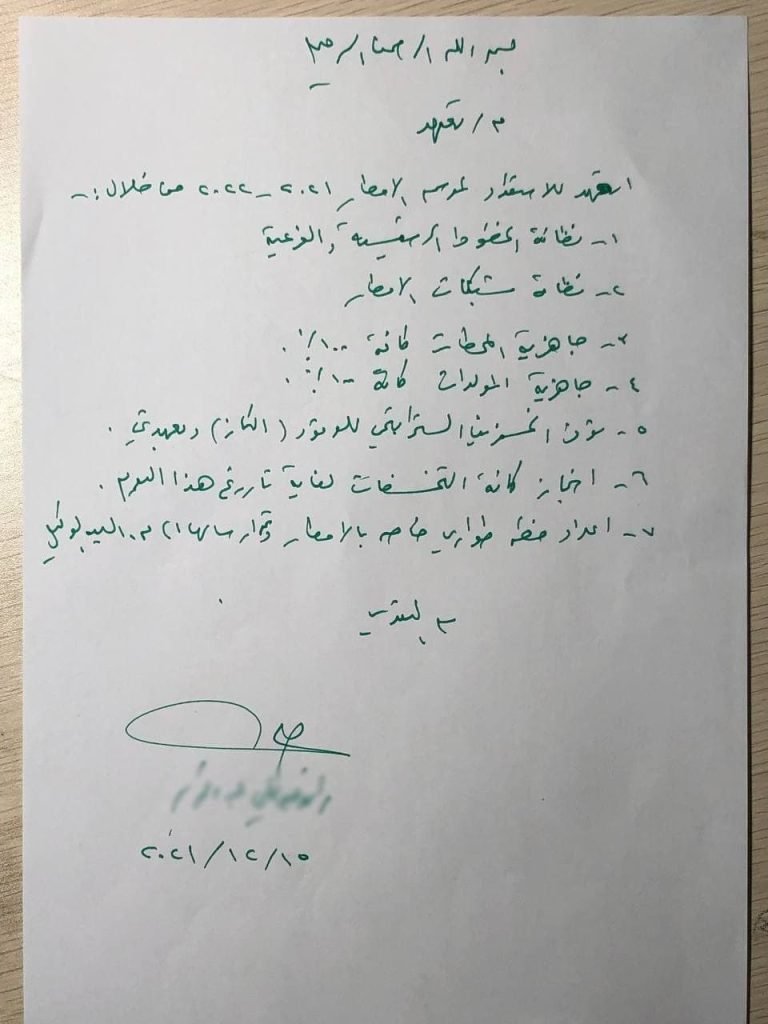 بسم الله الرحمن الرحيم
م / تعهد
اتعهد للاستعداد لموسم الامطار ٢٠٢١ - ٢٠٢٢ من خلال :-
١- نظافة الخطوط الرئيسية والفرعية
٢- نظافة شبكات الامطار
٣- جاهزية المحطات كافة ١٠٠٪ .
٤- جاهزية المولدات كافة ١٠٠٪ .
٥- الخزين الستراتيجي للوقود ( الكاز ) وبعهدتي .
٦- انجاز كافة التخسفات لغاية تاريخ هذا اليوم .
٧- اعداد خطة طوارئ خاصه بالامطار وتم ارسالها الى م. السيد الوكيل
مع التقدير
٢٠٢١/١٢/١٥